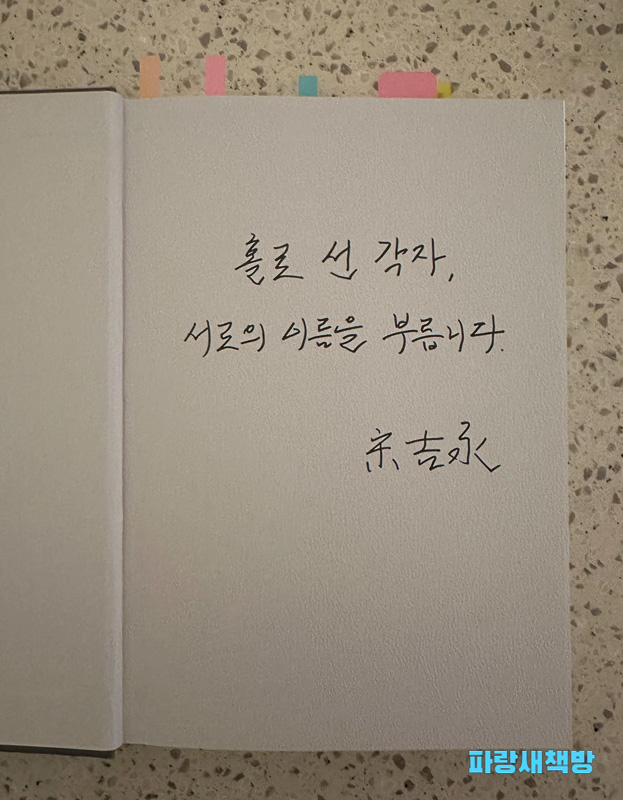 홀로 선 각자,
서로의 이름을 부릅니다.
宋吉永
파랑새책방